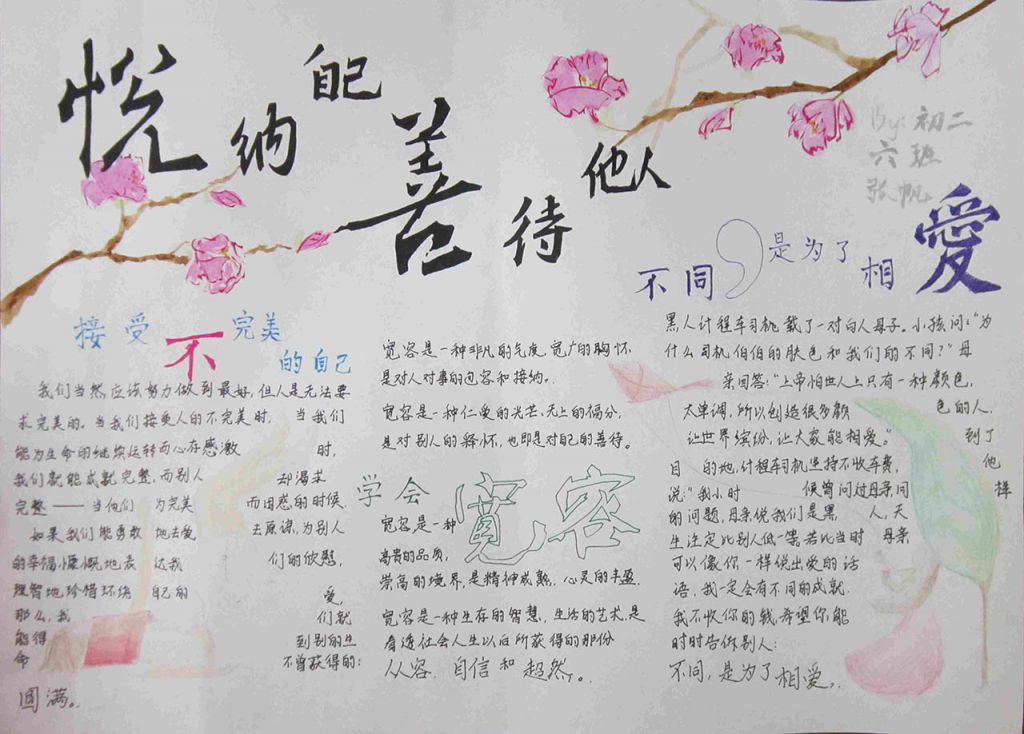 悦纳自己
善待他人
By: 初二
六班
张帆
接受不完美
的自己
我们当然应该努力做到最好,但人是无法要
求完美的。当我们接受人的不完美时, 当我们
能为生命的继续运转而心存感激 时,
我们就能成就完整,而别人 却渴求
完整——当他们 为完美 而困惑的时候,
如果我们能勇敢 地去爱 去原谅,为别人
的幸福慷慨地表 达我 们的欣慰,
理智地珍惜环绕 自己的 爱,
那么,我 们就
能得 到别的生
命 不曾获得的:
圆满。
宽容是一种非凡的气度,宽广的胸怀,
是对人对事的包容和接纳。
宽容是一种仁爱的光芒,无上的福分,
是对别人的释怀,也即是对自己的善待。
学会宽容
宽容是一种
高贵的品质,
崇高的境界,是精神成熟,心灵的丰盈,
宽容是一种生存的智慧,生活的艺术,是
看透社会人生以后所获得的那份
从容、自信和超然。
不同,是为了相爱
黑人计程车司机载了一对白人母子。小孩问:“为
什么司机伯伯的肤色和我们的不同?”母
亲回答:“上帝怕世人上只有一种颜色,
太单调,所以创造很多颜 色的人,
让世界缤纷,让大家能相爱。” 到了
目 的地,计程车司机坚持不收车费, 他
说:“我小时 候曾问过母亲同 样
的问题,母亲说我们是黑 人,天
生注定比别人低一等,若比当时 母亲
可以像你一样说出爱的话
语,我一定会有不同的成就,
我不收你的钱,希望你能
时时告诉别人:
不同,是为了相爱。